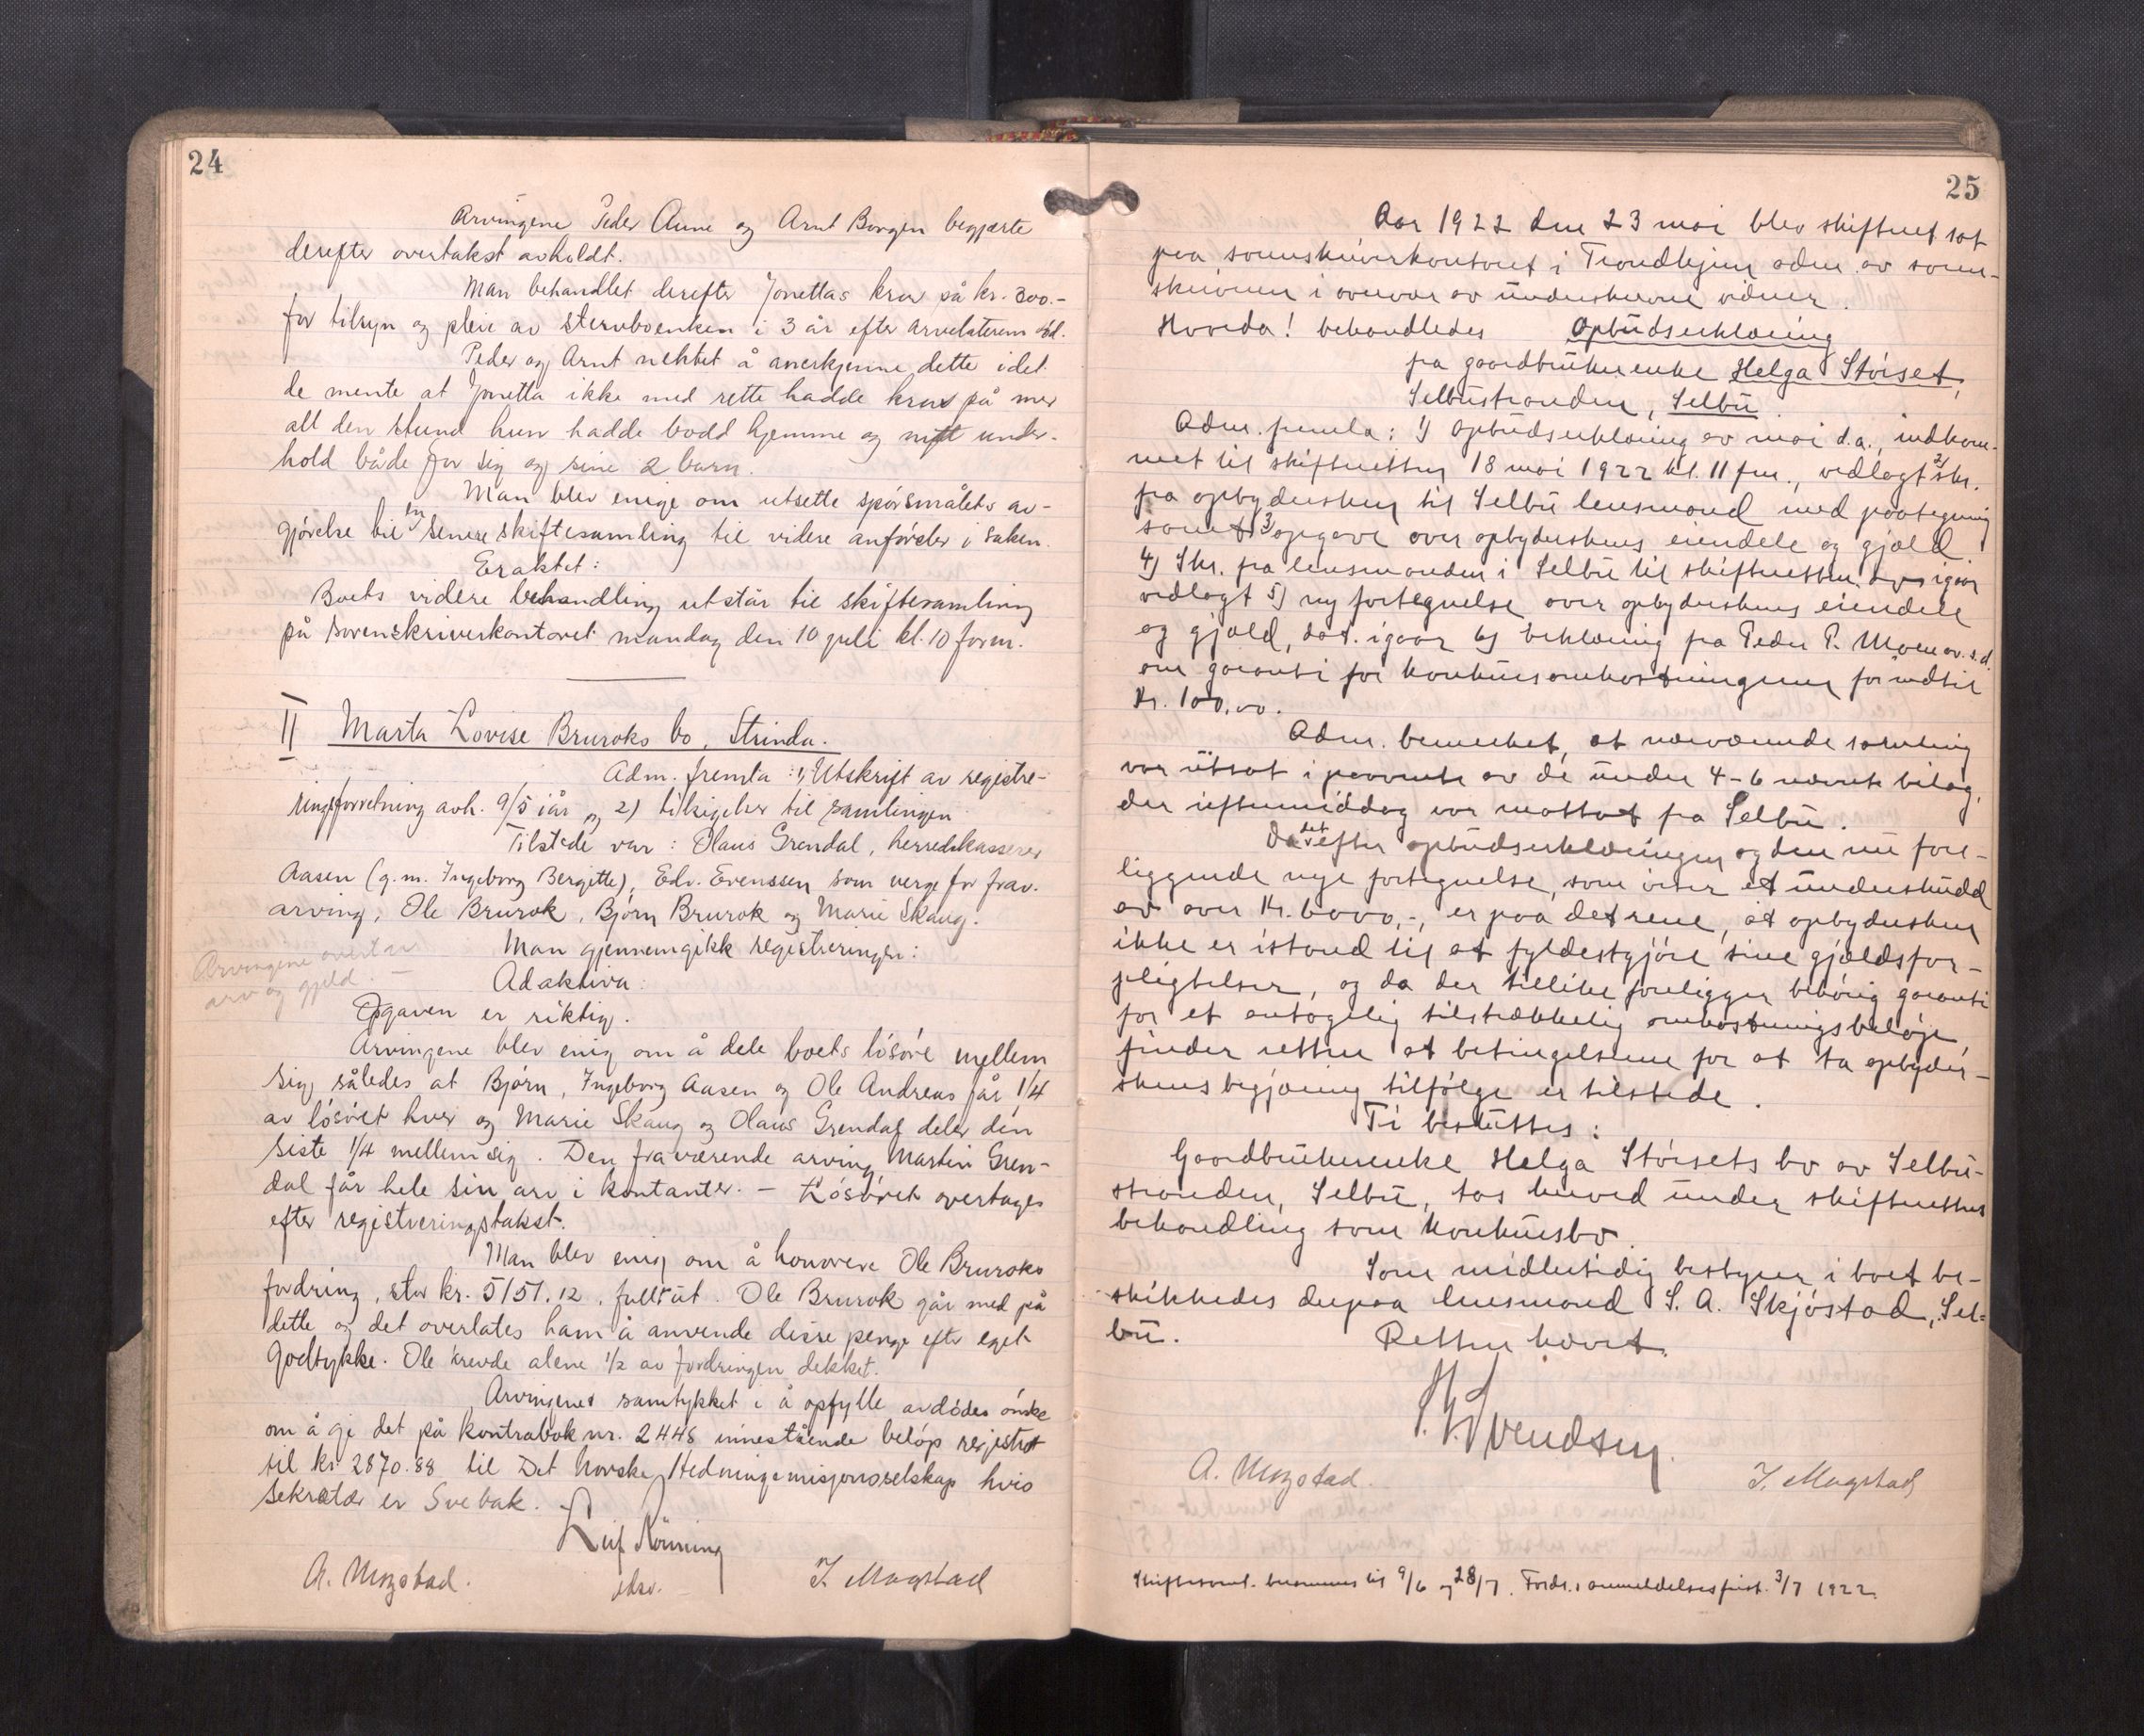 24
Arvingene Peder Aune og Arnt Borgen begjærte
derefter overtakst avholdt.
Man behandlet derefter Jonettas krav på kr. 300.-
for tilsyn og pleie av stervboenken i 3 år efter arvelaterens död.
Peder og Arnt nektet å anerkjenne dette idet
de mente at Jonetta ikke med rette hadde krav på mer
all den stund hun hadde bodd hjemme og nytt under-
hold både for sig og sine 2 barn.
Man blev enige om utsette spörsmålets av-
gjörelse til en senere skiftesamling til videre anförsler i saken.
Eraktet:
Boets videre behandling utstår til skiftesamling
på sorenskriverkontoret mandag den 10 juli kl. 10 form.
II Marta Lovise Bruroks bo, Strinda.
Adm. fremla: 1) Utskrift av registre-
ringsforretning avh. 9/5 iår og 2) tilsigelser til samlingen
Tilstede var: Olaus Grendal, herredskasserer
Aasen (g.m. Ingeborg Bergitte), Edv. Evenssen som verge for frav.
arving, Ole Brurok, Björn Brurok og Marie Skaug.
Man gjennemgikk registreringen:
Arvingene overtar
arv og gjeld. -
Ad aktiva:
Opgaven er riktig.
Arvingene blev enig om å dele boets lösöre mellem
sig således at Björn, Ingeborg Aasen og Ole Andreas får 1/4
av lösöret hver og Marie Skaug og Olaus Grendal deler den
siste 1/4 mellem sig. Den fraværende arving Martin Gren-
dal får hele sin arv i kontanter. - Lösöret overtages
efter registreringstakst.
Man blev enig om å honorere Ole Bruroks
fordring, stor kr. 5151.12, fullt ut. Ole Brurok går med på
dette og det overlates ham å anvende disse penge efter eget
godtykke. Ole krevde alene 1/2 av fordringen dekket.
Arvingene samtykket i å opfylle avdödes önske
om å gi det på kontrabok nr. 2448 innestående belöp registrert
til kr. 2870.88 til Det Norske Hedningemisjonsselskap hvis
sekretær er Svebak.
Leif Rönning
A. Mogstad. J. Mogstad
25
Aar 1922 den 23 mai blev skifteret sat
paa sorenskriverkontoret i Trondhjem adm. av soren-
skriveren i overvær av underskrevne vidner.
Hvorda! behandledes Opbudserklæring
fra gaardbrukerenke Helga Störset,
Selbustranden, Selbu.
Adm. fremla: 1) Opbudserklæring av mai d.a., indkom-
met til skifteretten 18 mai 1922 kl. 11 fm., vedlagt 2) skr.
fra opbydersken til Selbu lensmand med paategning
samt 3) opgave over opbyderskens eiendele og gjæld.
4) Skr. fra lensmanden i Selbu til skifteretten av igaar
vedlagt 5) ny fortegnelse over opbyderskens eiendele
og gjæld, dat. igaar 6) erklæring fra Peder P. Moen av s.d.
om garanti for konkursomkostningerne for indtil
Kr. 100,00.
Adm. bemerket, at nærværende samling
var utsat i paavente av de under 4-6 nævnte bilag,
der i eftermiddag var mottat fra Selbu.
Da det efter opbudserklæringen og den nu fore-
liggende nye fortegnelse, som viser et underskudd
av over Kr. 6000,-, er paa det rene, at opbydersken
ikke er istand til at fyldestgjöre sine gjældsfor-
pligtelser, og da der tillike foreligger behörig garanti
for et antagelig tilstrækkelig omkostningsbelöp,
finder retten at betingelserne for at ta opbyder-
skens begjæring tilfölge er tilstede.
Ti besluttes:
Gaardbrukerenke Helga Störsets bo av Selbu-
stranden, Selbu, tas herved under skifterettens
behandling som konkursbo.
Som midlertidig bestyrer i boet be-
skikkedes derpaa lensmand S. A. Skjöstad, Sel-
bu.
Retten hævet.
Svendsen.
A. Mogstad. J. Mogstad
Skiftesaml. berammes til 9/6 og 28/7. Fordr. anmeldelsesfrist 3/7 1922.